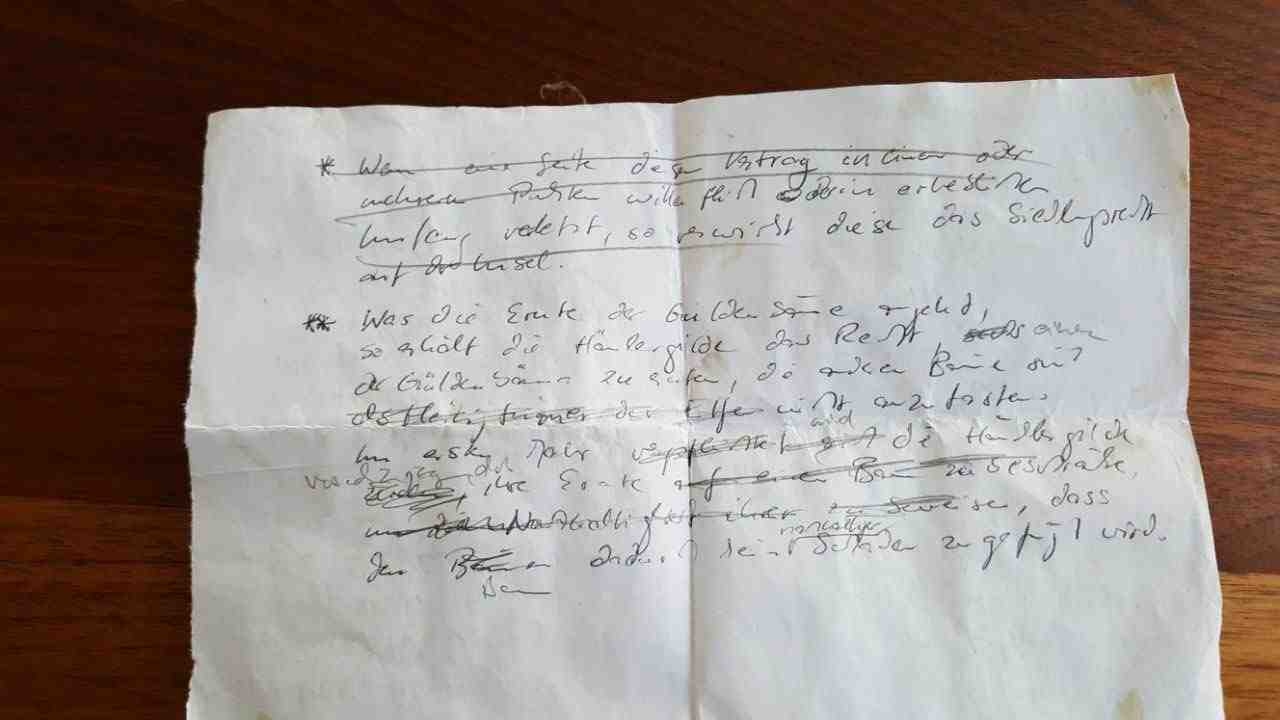 * Wenn eine Seite diesen Vertrag in einem oder
mehreren Punkten willentlich oder in erheblichem
Umfang verletzt, so verwirkt diese das Siedlungsrecht
auf der Insel.
** Was die Ernte der Güldenbäume angeht,
so erhält die Händlergilde das Recht einen
der Güldenbäume zu ernten, die anderen Bäume sind
als Heiligtümer der Elfen nicht anzutasten.
Im ersten Jahr verpflichtet wird die Händlergilde
ihre Ernte auf einen Baum zu beschränken,
um die Nachhaltigkeit ihrer zu beweisen, dass
den Bäumen dadurch kein Schaden zugefügt wird.
Baum